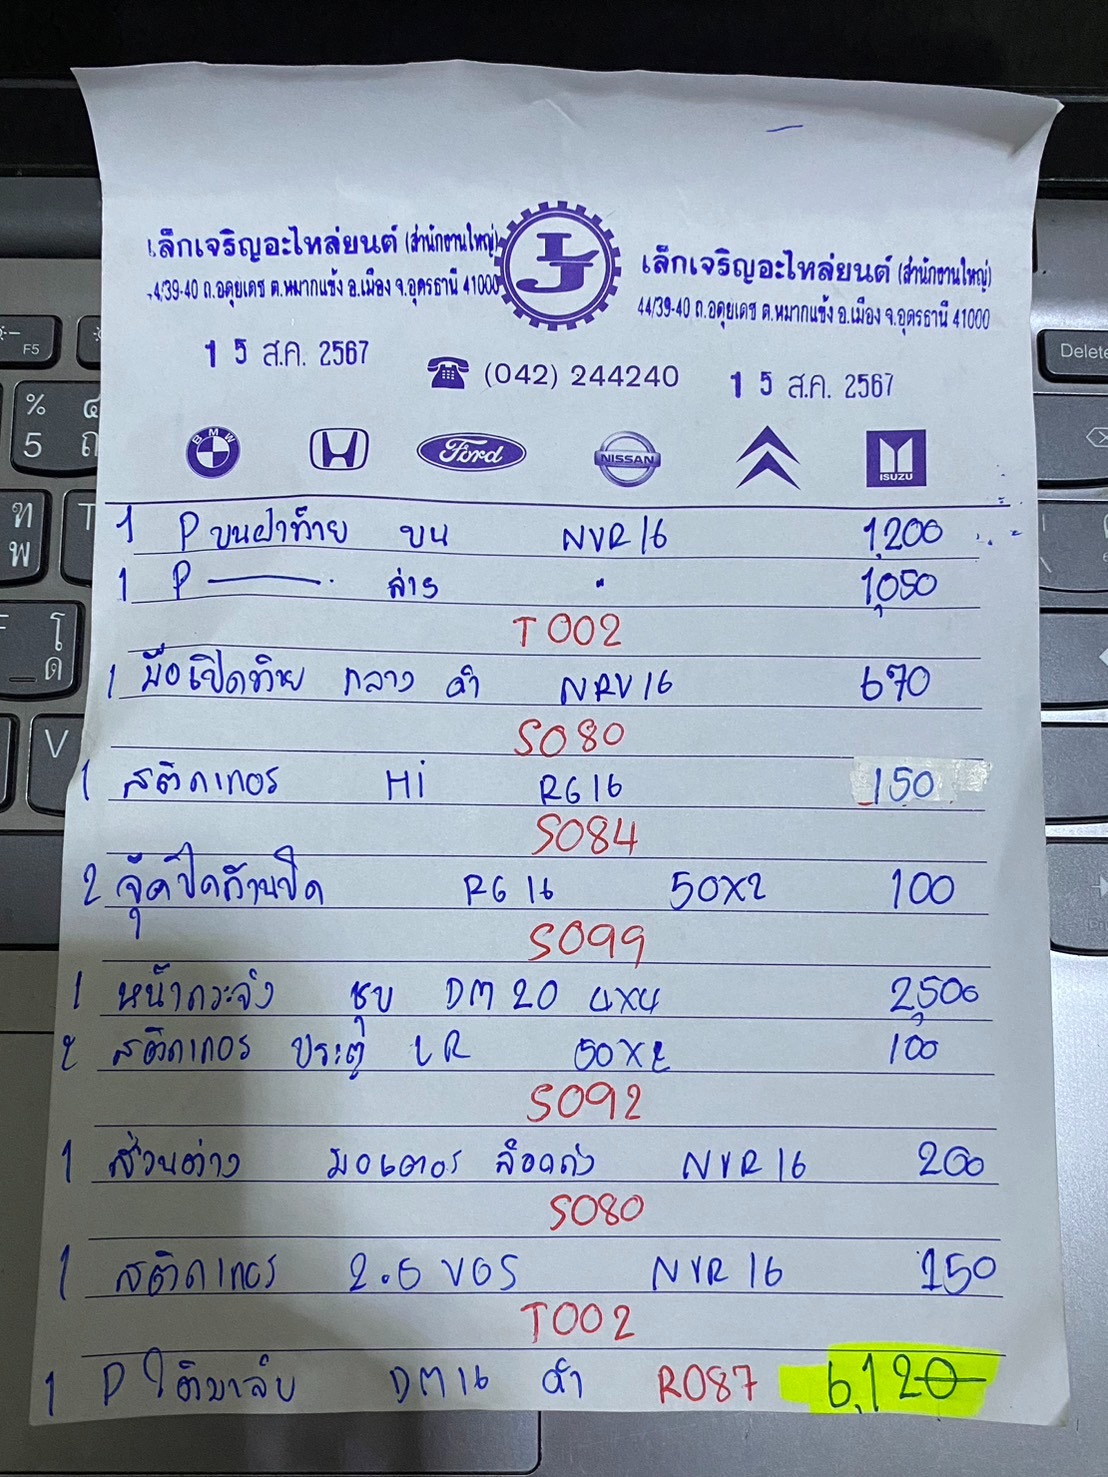 เล็กเจริญอะไหล่ยนต์ (สำนักงานใหญ่)
4/39-40 ถ.อดุยเดช ต.หมากแข้ง อ.เมือง จ.อุดรธานี 41000
1 5 ส.ค. 2567
LJ
เล็กเจริญอะไหล่ยนต์ (สำนักงานใหญ่)
44/39-40 ถ.อดุยเดช ต.หมากแข้ง อ.เมือง จ.อุดรธานี 41000
(042) 244240
1 5 ส.ค. 2567
BMW
Ford
NISSAN
ISUZU
1 P ขนฝาท้าย บน NVR16 1,200
1 P ล่าง " 1,050
T002
1 มือเปิดท้าย กลาง ดำ NRV16 670
S080
1 สติกเกอร Hi RG16 150
S084
2 RG16 50X2 100
S099
1 หน้ากระจัง ชุบ DM20 4X4 2,500
2 สติกเกอร ประตู LR 50X2 100
S092
1 ส่วนต่าง มอเตอร ล็อค NVR16 200
S080
1 สติกเกอร 2.5 VGS NVR16 150
T002
1 P DM16 ดำ R087 6,120
F5
Delete
% ๔
5 ถ
ฑ
พ
T
F โ
ด
V